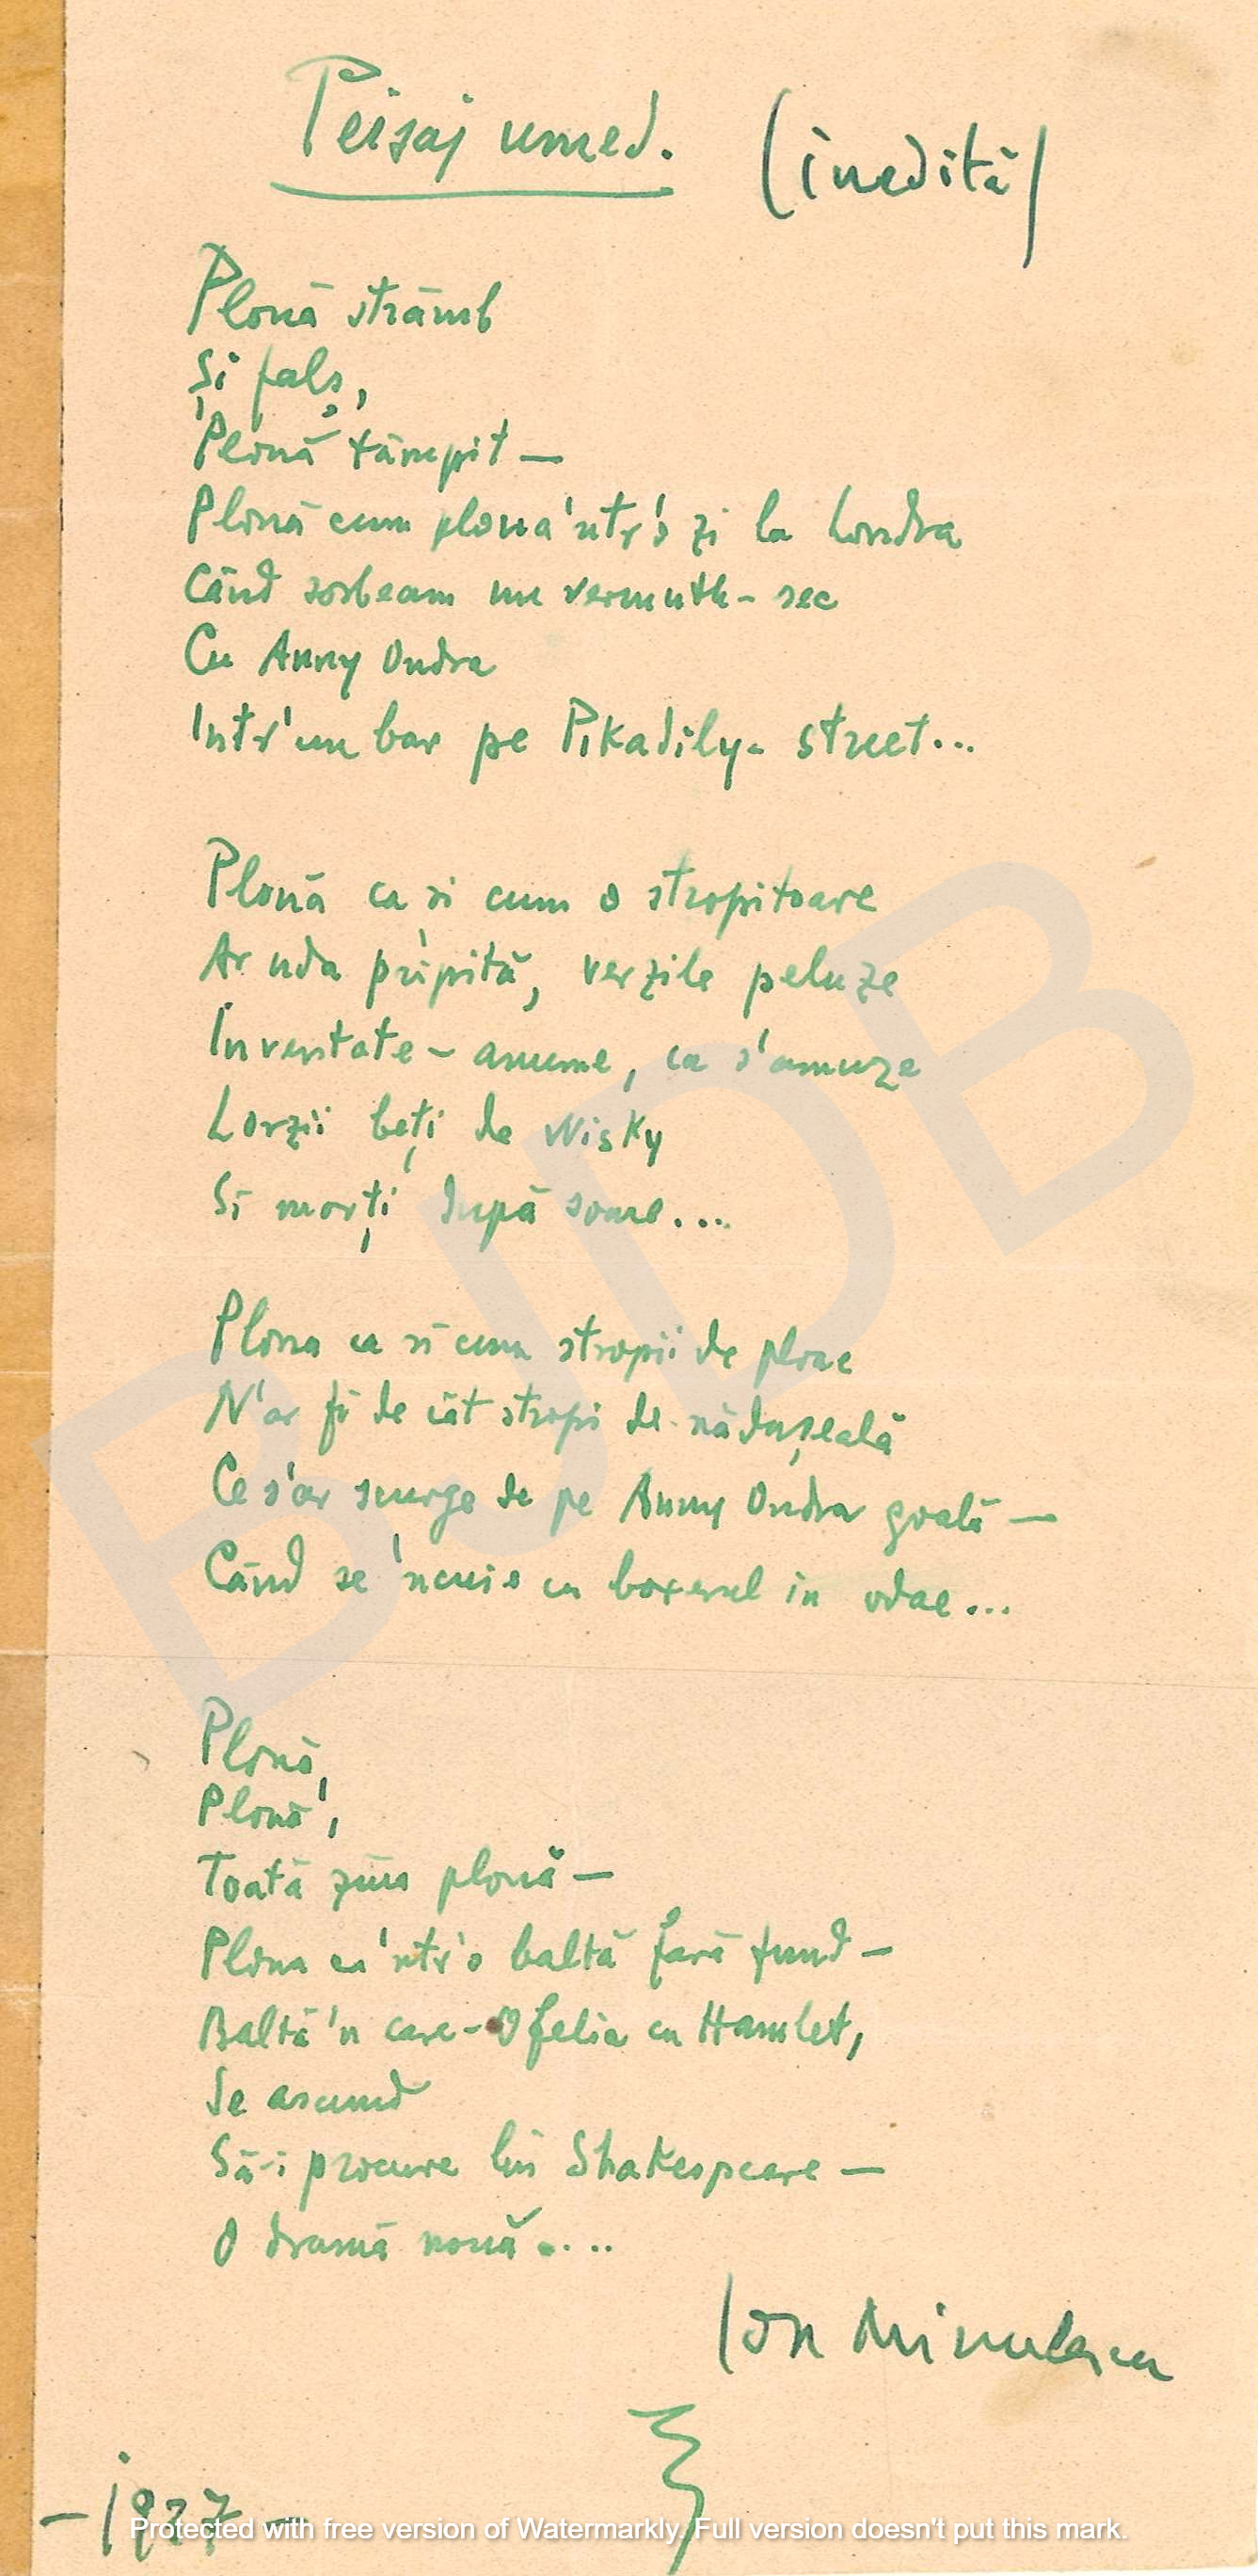 Peisaj umed. (inedită)
Plouă strâmb
Și fals,
Plouă tâmpit —
Plouă cum ploua 'ntr'o zi la Londra
Când sorbeam un vermuth - sec
Cu Anny Ondra
'Ntr'un bar pe Pikadily - street...
Plouă ca si cum o stropitoare
Ar uda pripită, verzile peluze
Inventate - anume, ca s'amuze
Lorzii beți de Wisky
Si morți după soare....
Ploua ca si cum stropii de ploae
N'ar fi de cât stropi de nădușeală
Ce s'ar scurge de pe Anny Ondra goală —
Când se 'ncuie cu boxerul in odae...
Plouă,
Plouă,
Toată ziua plouă —
Ploua ca 'ntr'o baltă fară fund —
Baltă 'n care - Ofelia cu Hamlet,
Se ascund
Să-i procure lui Shakespeare —
O dramă nouă....
Ion Minulescu
- 1937 -
BJDB
Protected with free version of Watermarkly. Full version doesn't put this mark.